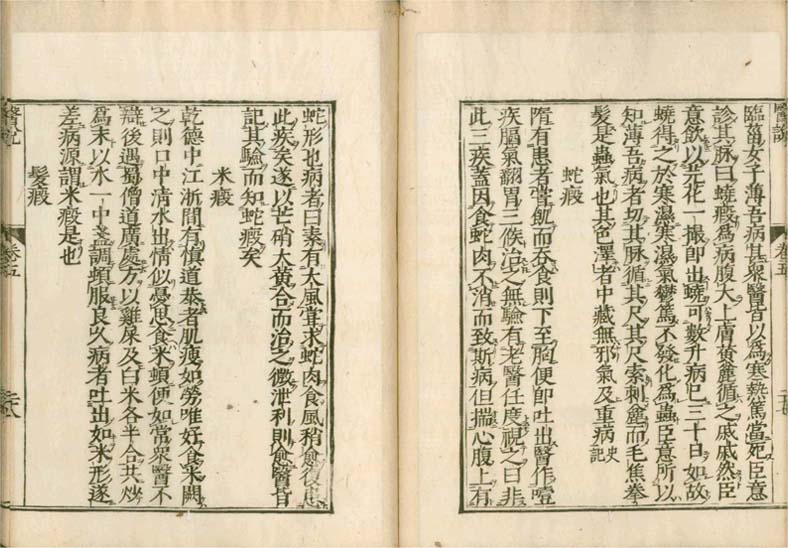 醫說
卷五
臨菑女子薄吾病甚衆醫皆以爲寒熱篤當死臣意
診其脉曰蟯瘕爲病腹大上膚黄麄循之戚戚然臣
意飲以芫花一撮即出蟯可數升病已三十日如故
蟯得之於寒濕寒濕氣鬱篤不發化爲蟲臣意所以
知薄吾病者切其脉循其尺其尺索刺麄而毛焦拳
髮是蟲氣也其色澤者中藏無邪氣及重病史記
蛇瘕
隋有患者嘗飢而吞食則下至胸便即吐出醫作噎
疾膈氣翻胃三候治之無驗有老醫任度視之曰非
此三疾蓋因食蛇肉不消而致斯病但揣心腹上有
蛇形也病者曰素有大風嘗求蛇肉食風稍愈復患
此疾矣遂以芒硝大黄合而治之微泄利則愈醫皆
記其驗而知蛇瘕矣
米瘕
乾德中江浙間有慎道恭者肌瘦如勞唯好食米闕
之則口中清水出情似憂思食米頓便如常衆醫不
辯後遇蜀僧道廣處方以雞屎及白米各半合共炒
爲末以水一中盞調頓服良久病者吐出如米形遂
差病源謂米瘕是也
髮瘕
醫說
卷五